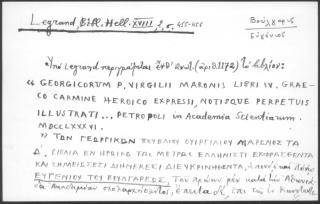 Legrand, Bibl. Hell. XVIII, 2, σ. 455-456
Βούλγαρις
Εὐγένιος
Ὑπὸ Legrand περιγράφεται
" GEORGICORUM P. VIRGILII MARONIS LIBRI IV. GRAE-
CO CARMINE HEROICO EXPRESSI, NOTISQUE PERPETUIS
ILLUSTRATI... PETROPOLI in Academia Scientiarum.
MDCCLXXXVI.
" ΤΩΝ ΓΕΩΡΓΙΚΩΝ ΠΟΥΒΛΙΟΥ ΟΥΙΡΓΙΛΙΟΥ ΜΑΡΩΝΟΣ ΤΑ
Δ. ΒΙΒΛΙΑ ΕΝ ΗΡΩΙΚΩ ΤΩ ΜΕΤΡΩ ΕΛΛΗΝΙΣΤΙ ΕΚΦΡΑΣΘΕΝΤΑ
ΚΑΙ ΣΗΜΕΙΩΣΕΣΙ ΔΙΗΝΕΚΕΣΙ ΔΙΕΥΚΡΙΝΗΘΕΝΤΑ,
ΕΥΓΕΝΙΟΥ ΤΟΥ ΒΟΥΛΓΑΡΕΩΣ. Τοῦ πρώην